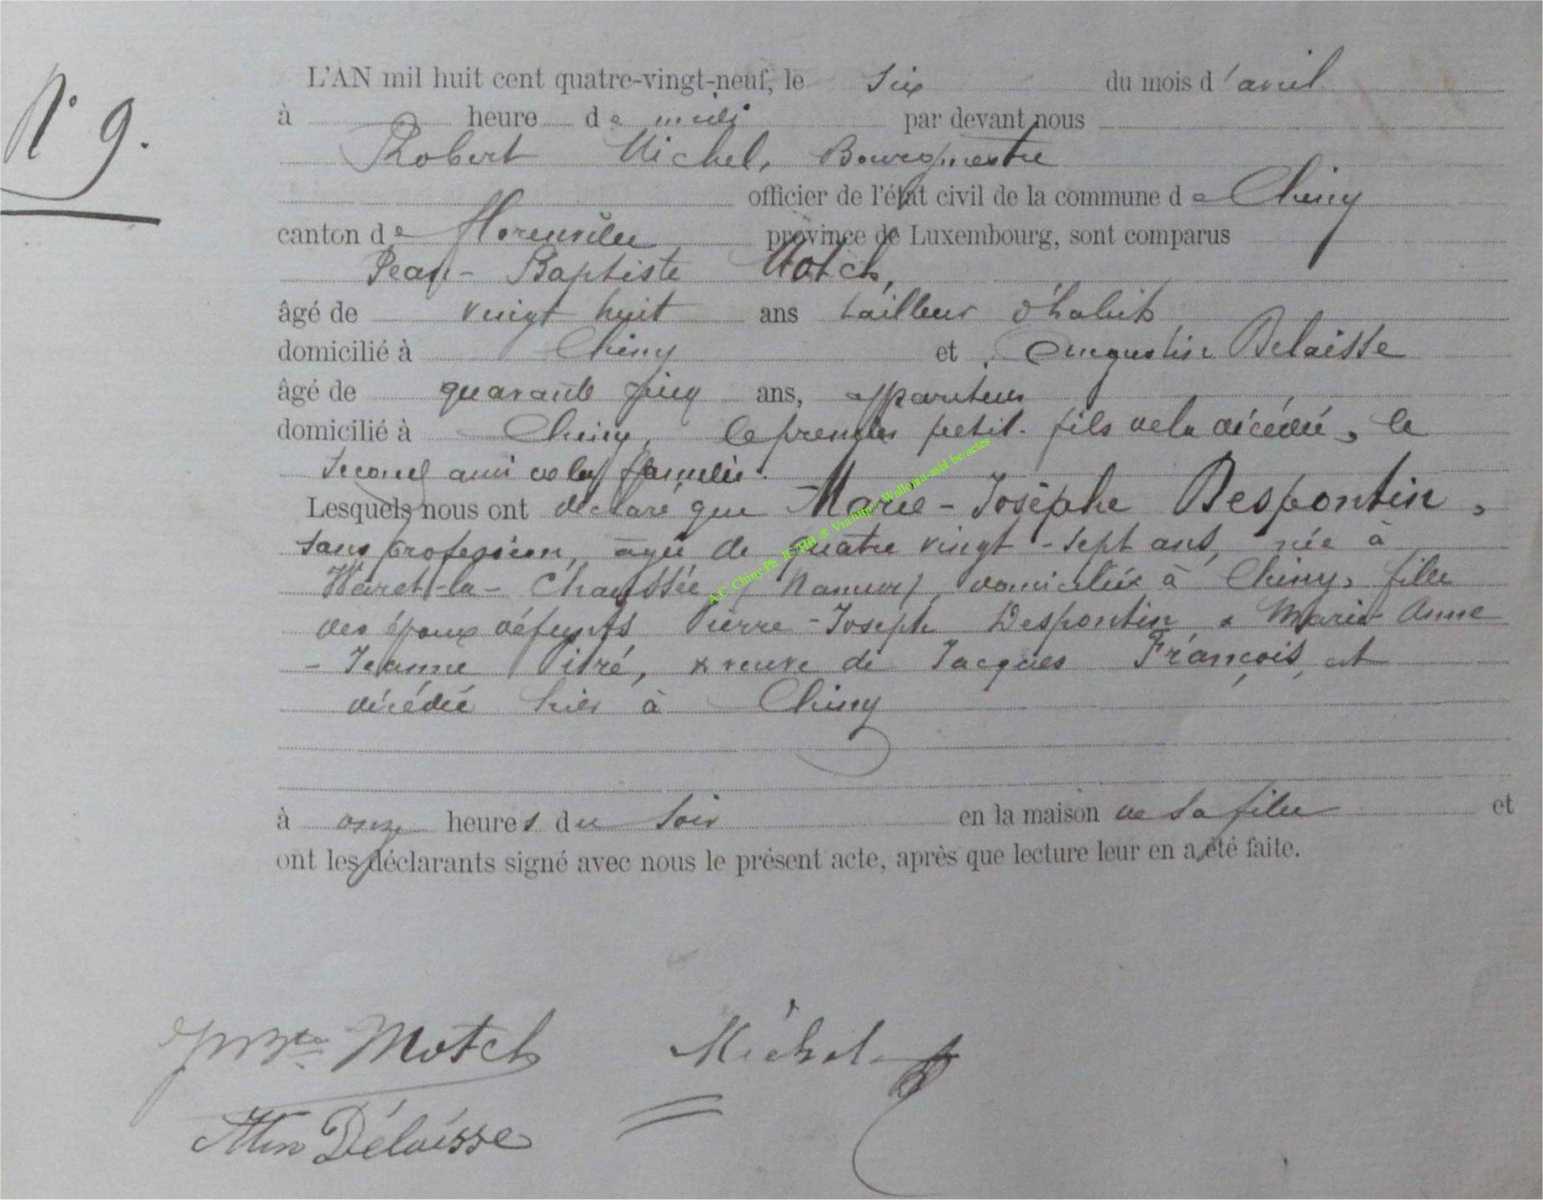 N° 9.
L'AN mil huit cent quatre-vingt-neuf, le six du mois d'avril
à heure de midi par devant nous
Robert Michel, Bourgmestre
officier de l'état civil de la commune de Chiny
canton de Florenville province de Luxembourg, sont comparus
Jean-Baptiste Motch,
âgé de vingt huit ans tailleur d'habits
domicilié à Chiny et Augustin Delaisse
âgé de quarante cinq ans, appariteur
domicilié à Chiny, le premier petit-fils de la décédée, le
second ami de la famille.
Lesquels nous ont déclaré que Marie-Josèphe Despontin,
sans profession, âgée de quatre vingt-sept ans, née à
Haret-la-Chaussée (Namur), domiciliée à Chiny, fille
des époux défunts Pierre-Joseph Despontin & Marie-Anne
-Jeanne Pitré, veuve de Jacques François, est
décédée hier à Chiny
à onze heures du soir en la maison de sa fille et
ont les déclarants signé avec nous le présent acte, après que lecture leur en a été faite.
JnBte Motch Michel
Atin Délaisse